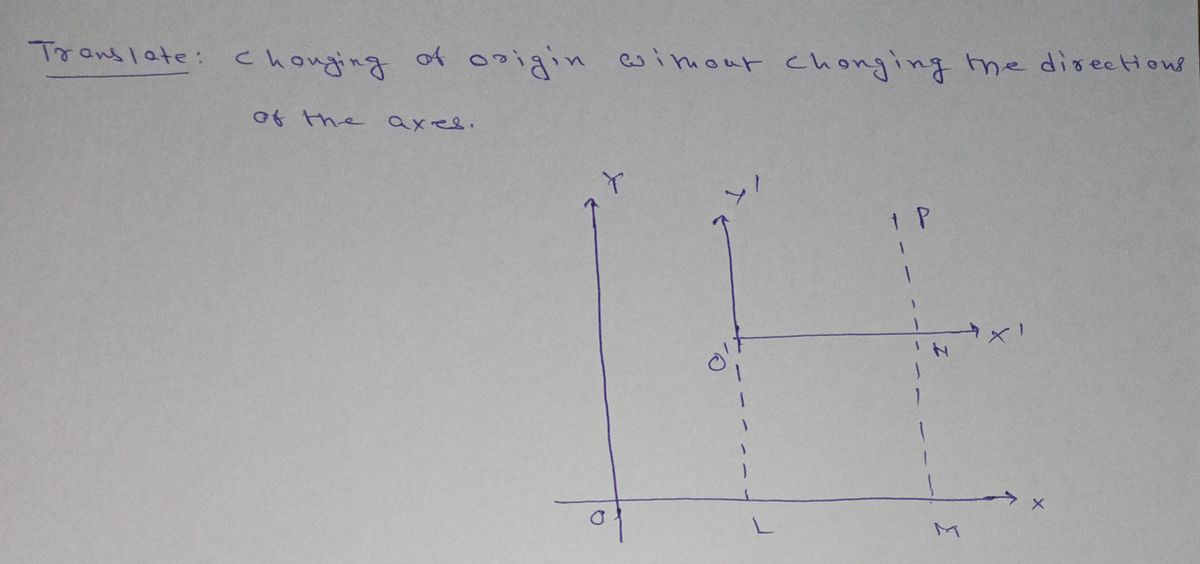 Translate: Changing of origin without changing the directions
of the axes.
Y
Y'
P
X'
N
O'
X
O
L
M